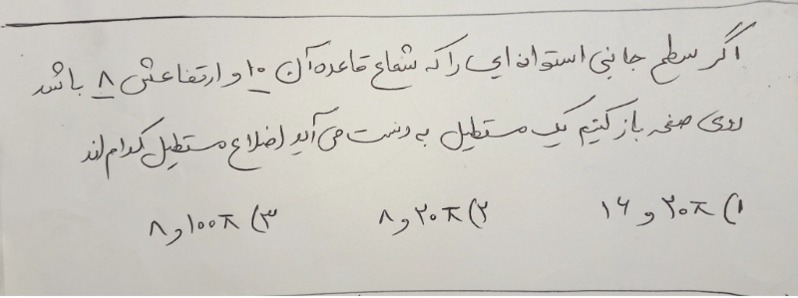 اگر سطح جانبی استوانه‌ای را که شعاع قاعده آن ۱۰ و ارتفاعش ۸ باشد
روی صفحه باز کنیم یک مستطیل به دست می‌آید اضلاع مستطیل کدام‌اند
۱) ۲۰π و ۱۶ ۲) ۲۰π و ۸ ۳) ۱۰۰π و ۸